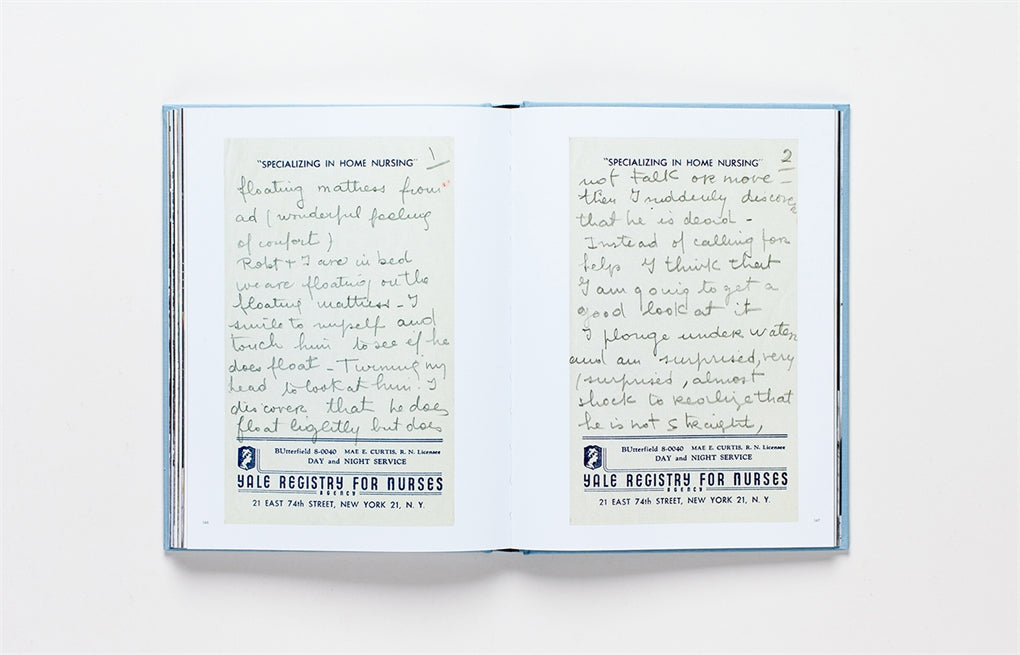 "SPECIALIZING IN HOME NURSING" 1
floating mattress from
ad (wonderful feeling
of confort)
Robt + I are in bed
we are floating on the
floating mattress - I
smile to myself and
touch him to see if he
does float - Turning my
head to look at him. I
discover that he does
float lightly but does
BUtterfield 8-0040 MAE E. CURTIS, R. N. Licensee
DAY and NIGHT SERVICE
YALE REGISTRY FOR NURSES
AGENCY
21 EAST 74th STREET, NEW YORK 21, N. Y.
"SPECIALIZING IN HOME NURSING" 2
not talk or move -
then I suddenly discover
that he is dead -
Instead of calling for
help I think that
I am going to get a
good look at it
I plonge under water
and am surprised, very
surprised, almost
shock to realize that
he is not straight,
BUtterfield 8-0040 MAE E. CURTIS, R. N. Licensee
DAY and NIGHT SERVICE
YALE REGISTRY FOR NURSES
AGENCY
21 EAST 74th STREET, NEW YORK 21, N. Y.